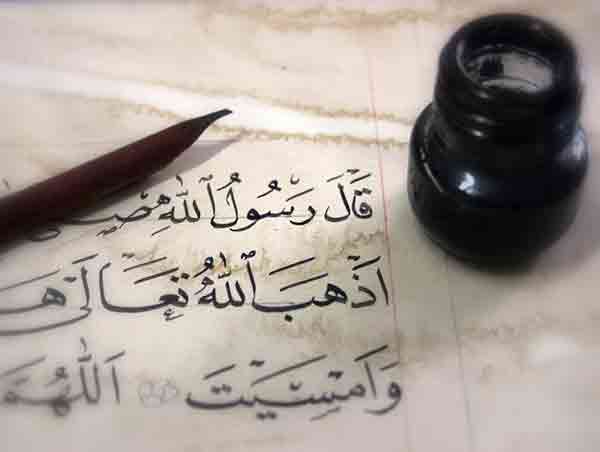 قَالَ رَسُولُ اللّٰهِ
اَذْهَبَ اللّٰهُ تَعَالَى
وَاَمْسَيْتَ اَللّٰهُمَّ